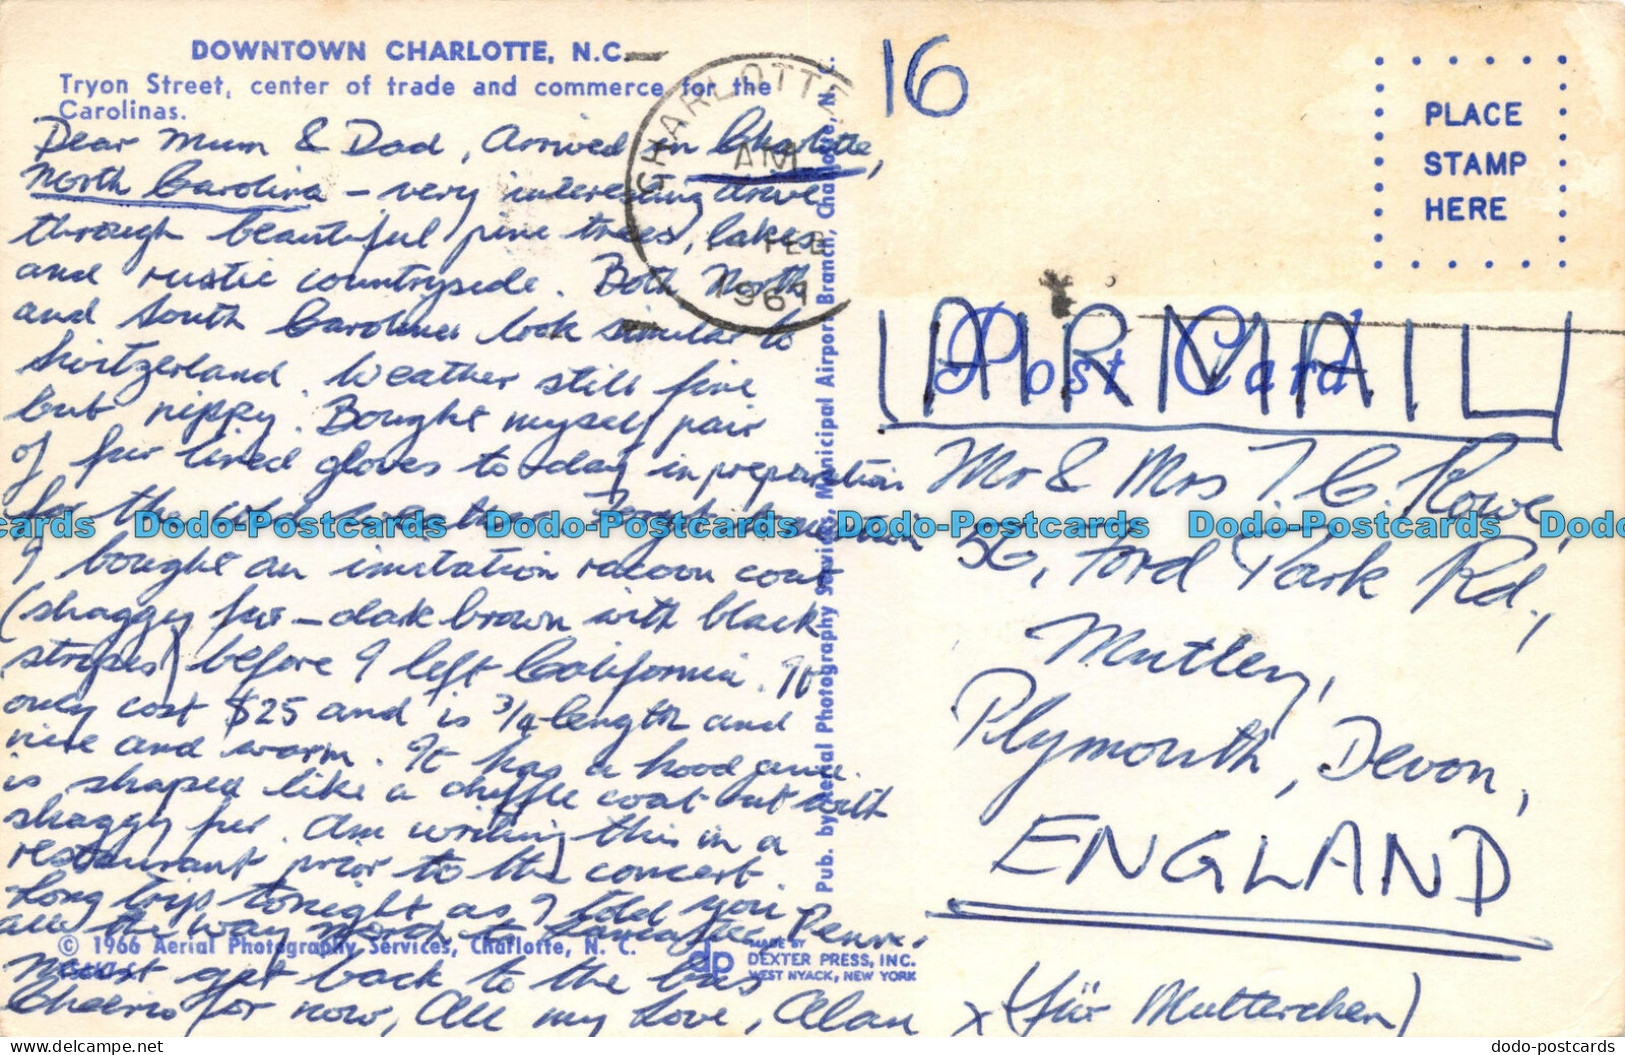 DOWNTOWN CHARLOTTE, N.C.
Tryon Street, center of trade and commerce for the
Carolinas.
Dear Mum & Dad, Arrived in Charlotte,
North Carolina – very interesting drive
through beautiful pine trees, lakes
and rustic countryside. Both North
and South Carolina look similar to
Switzerland. Weather still fine
but nippy. Bought myself pair
of fur lined gloves to-day in preparation
for the
I bought an imitation racoon coat
(shaggy fur – dark brown with black
stripes) before I left California. It
only cost $25 and is 3/4-length and
nice and warm. It has a hood and
is shaped like a duffle coat but with
shaggy fur. Am writing this in a
restaurant prior to the concert.
Long trip tonight as I told you.
all the way North to Lancaster Penn.
Must get back to the bus
Cheerio for now, All my Love, Alan
© 1966 Aerial Photography Services, Charlotte, N. C.
Pub. by Aerial Photography Services, Municipal Airport Branch, Charlotte, N. C.
dp
MADE BY
DEXTER PRESS, INC.
WEST NYACK, NEW YORK
CHARLOTTE
AM
FEB
1967
16
PLACE
STAMP
HERE
Post Card
AIRMAIL
Mr & Mrs T. C. Rowe,
56, Ford Park Rd.,
Mutley,
Plymouth, Devon,
ENGLAND
x (für Mutterchen)
Dodo-Postcards Dodo-Postcards Dodo-Postcards Dodo-Postcards Dodo-Postcards
dodo-postcards
DELCAMPE.COM